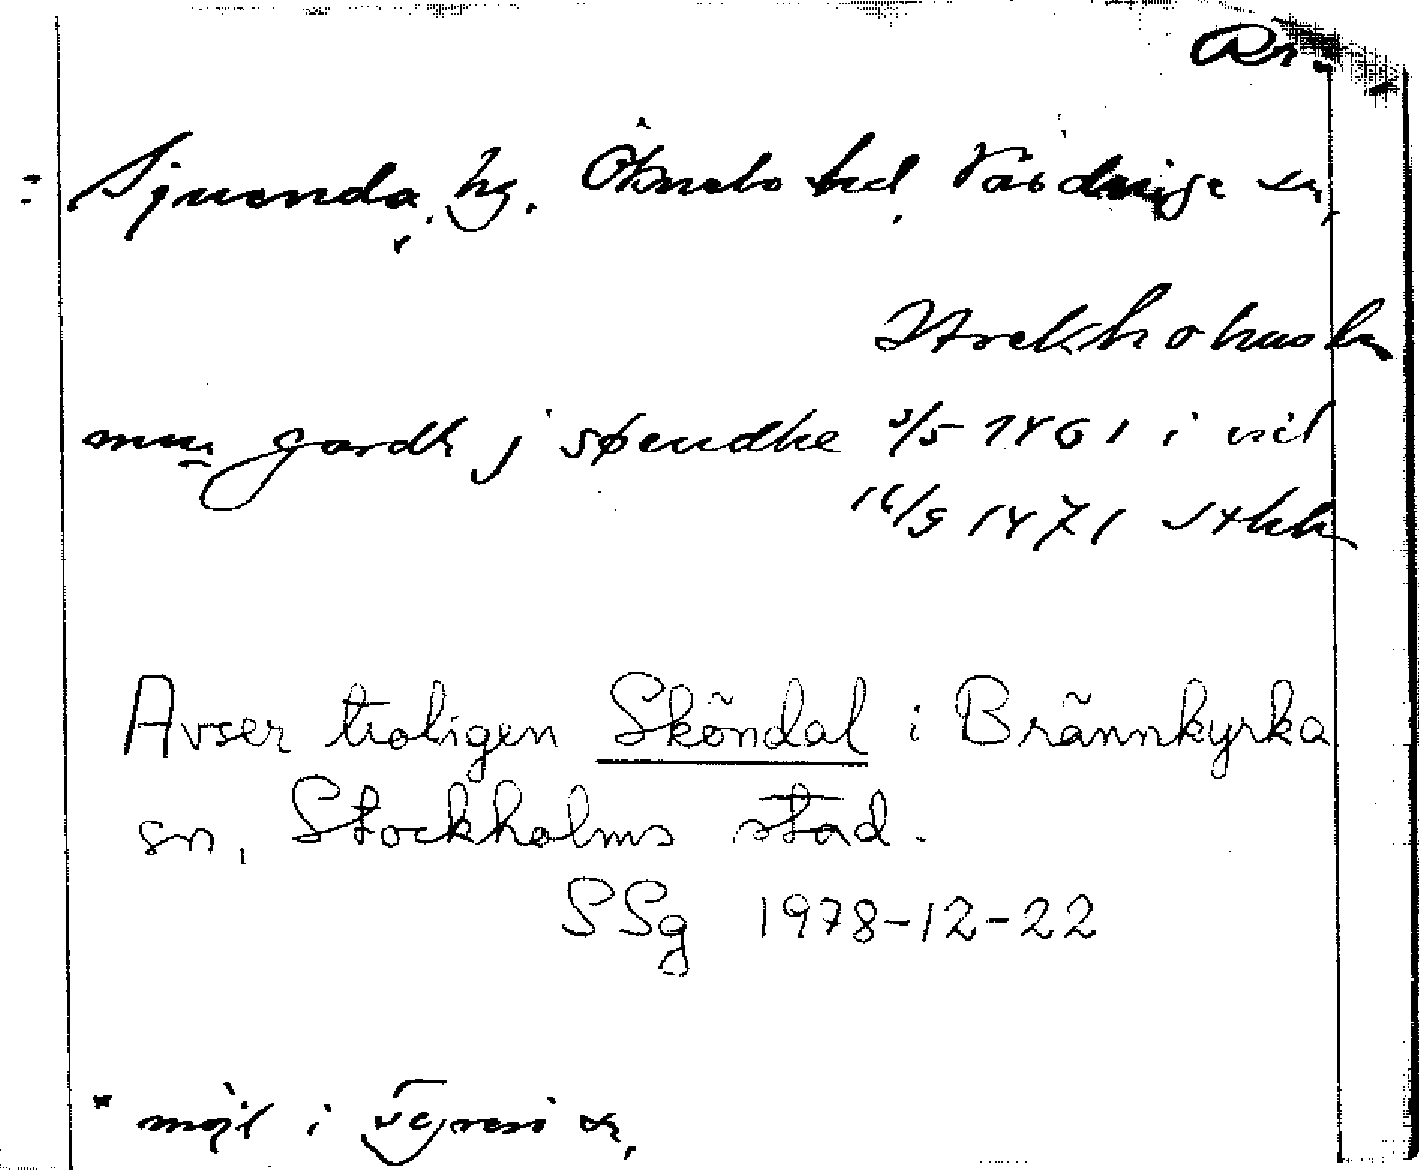 Sjuenda, hg. Öknebo hd, Vårdinge sn,
Stockholms l.
gardh j söendhe 3/5 1461 i vid
16/9 1471 Sthlm
Avser troligen Sköndal i Brännkyrka
sn, Stockholms stad.
SSg 1978-12-22
* möjl i Tyresö sn,